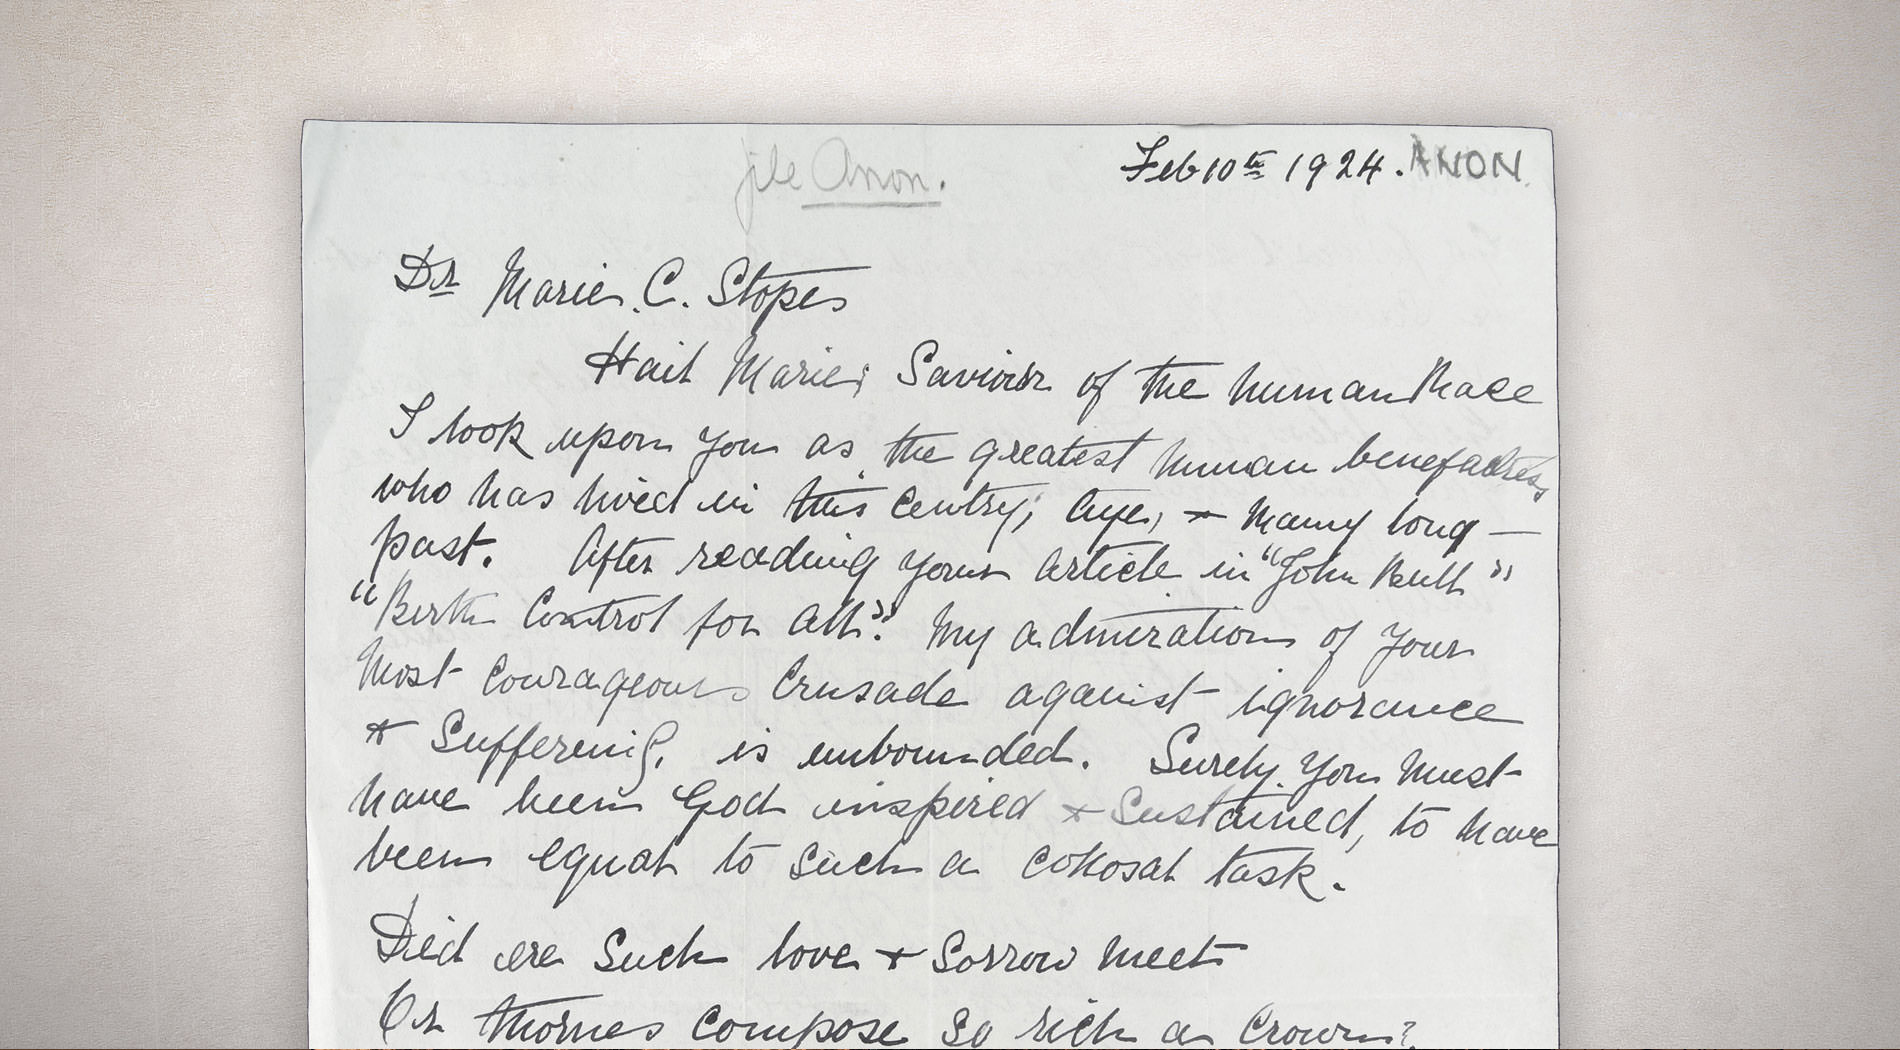 file Anon.
Feb 10th 1924. ANON.
Dr Marie. C. Stopes
Hail Marie; Saviour of the human Race
I look upon you as the greatest human benefactress
who has lived in this Centry; aye, & many long —
past. After reading your article in "John Bull"
"Birth Control for all". My admiration of your
Most Courageous Crusade against ignorance
& Suffering, is unbounded. Surely you must
have been God inspired & Sustained, to have
been equal to such a collosal task.
Did ere such love & Sorrow meet
Or thornes compose so rich a Crown?